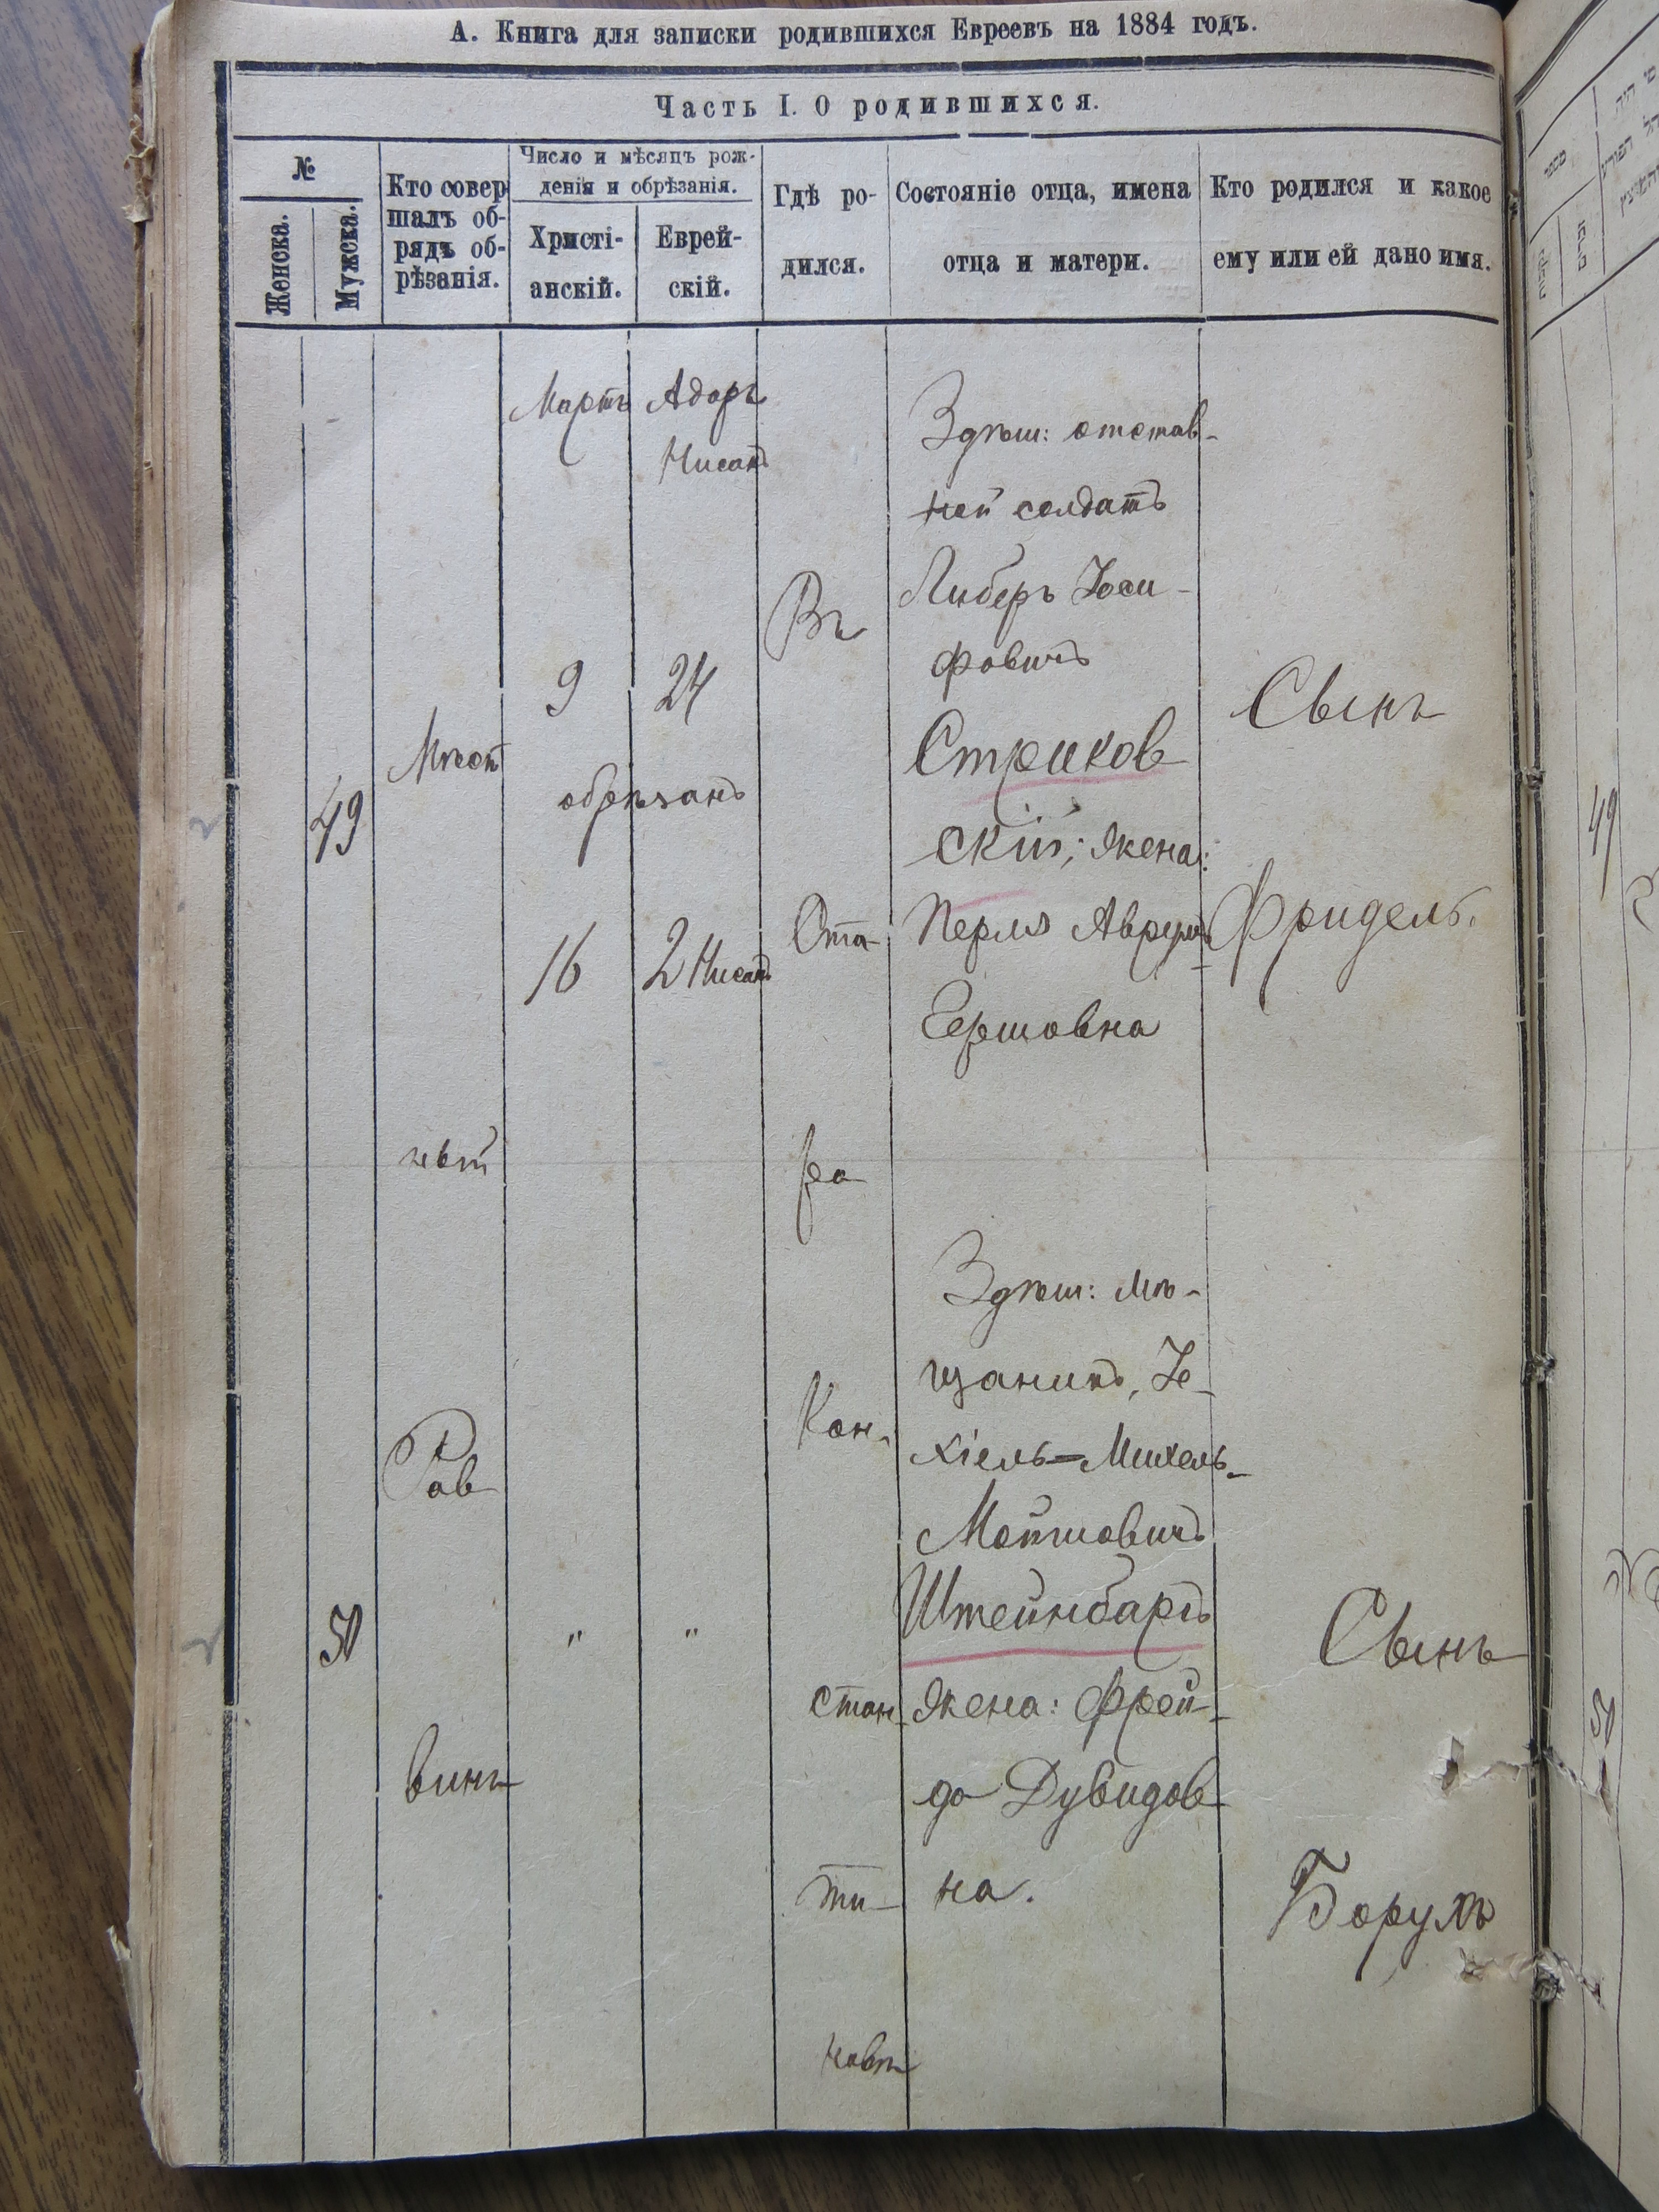 А. Книга для записки родившихся Евреевъ на 1884 годъ.
Часть I. О родившихся.
№
Женска.
Мужска.
Кто совер
шалъ об-
рядъ об-
рѣзанія.
Число и мѣсяцъ рож-
денія и обрѣзанія.
Христі-
анскій.
Еврей-
скій.
Гдѣ ро-
дился.
Состояніе отца, имена
отца и матери.
Кто родился и какое
ему или ей дано имя.
49
Мѣст
ный
Рав
винъ
Мартъ
Адаръ
Нисанъ
9
24
обрѣзанъ
16
2 Нисанъ
Въ
Ста-
ро
Кон-
стан-
ти-
новѣ
Здѣш: отстав-
ной солдатъ
Либеръ Іоси-
фовичъ
Стриков
скій; жена:
Перля Аврум-
Гершовна
Сынъ
Фридель.
50
"
"
Здѣш: мѣ-
щанинъ, Іе-
хіель=Михель-
Мотіовичъ
Штейнбаргъ
жена: Фрей-
да Дувидов-
на.
Сынъ
Борухъ
49
50